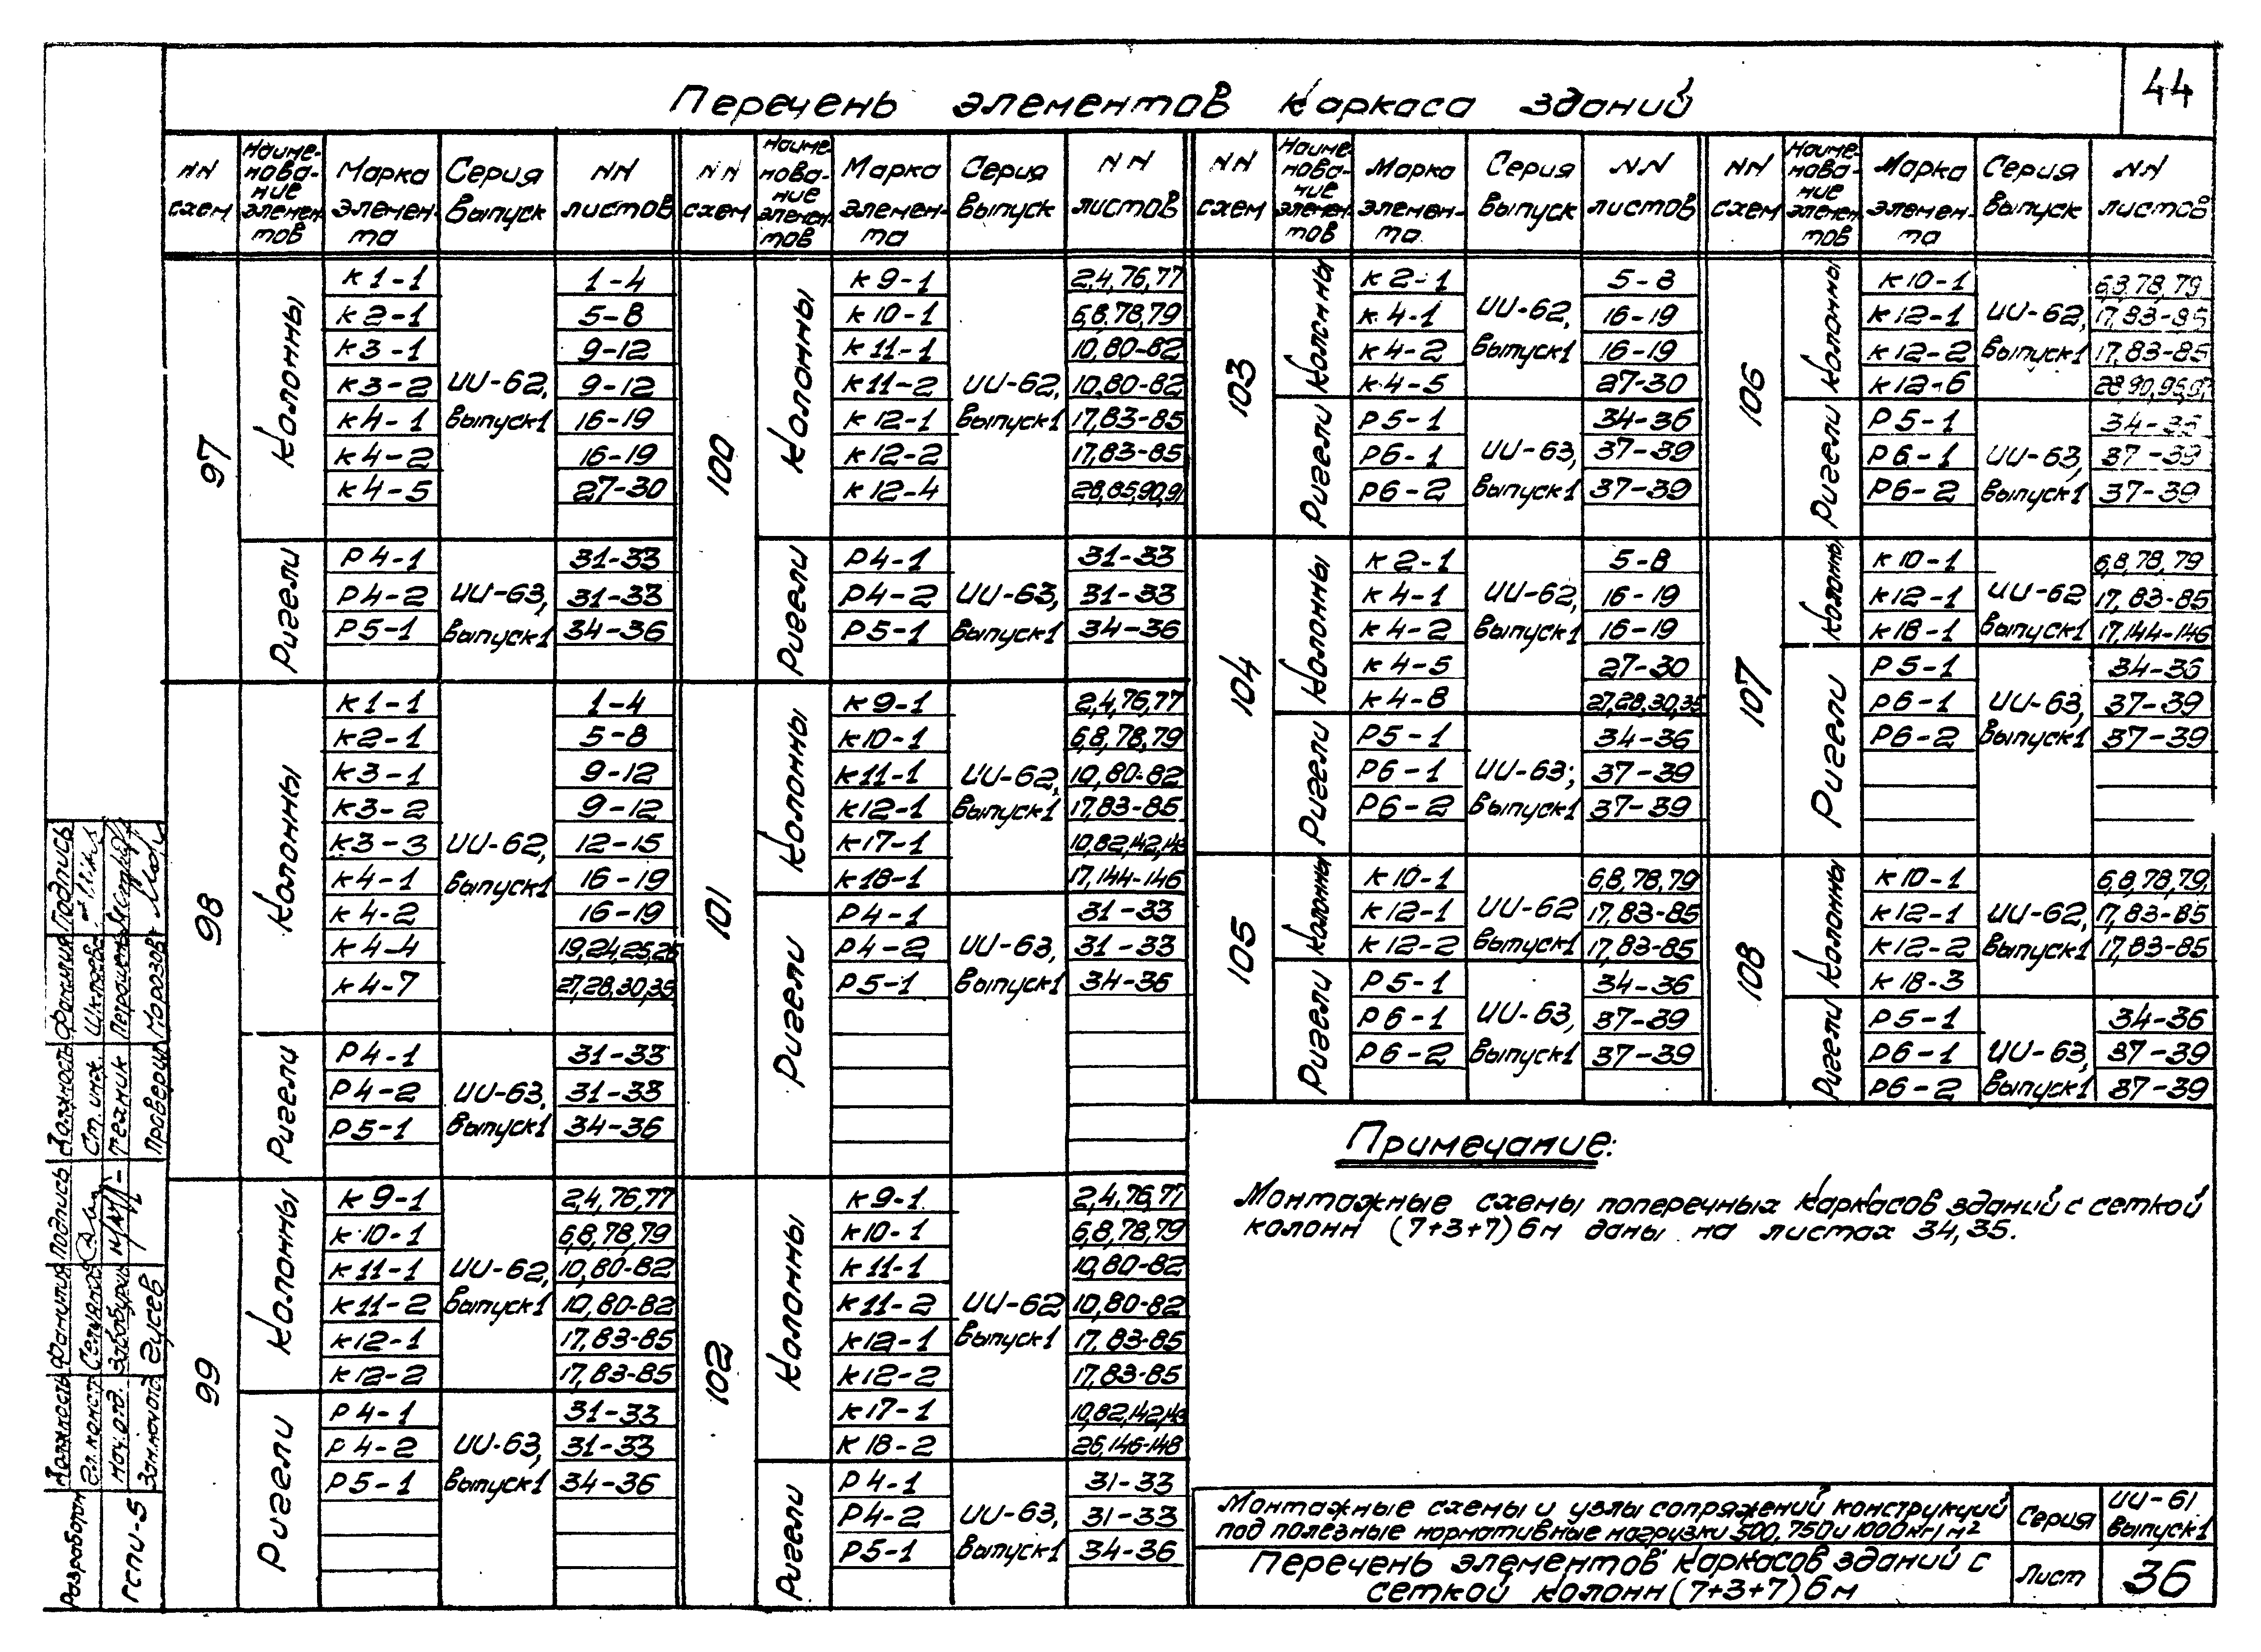 44
Перечень элементов каркаса зданий
NN схем
Наименование элементов
Марка элемента
Серия выпуск
NN листов
NN схем
Наименование элементов
Марка элемента
Серия выпуск
NN листов
NN схем
Наименование элементов
Марка элемента
Серия выпуск
NN листов
NN схем
Наименование элементов
Марка элемента
Серия выпуск
NN листов
97
Колонны
ИИ-62, выпуск1
К1-1 1-4
К2-1 5-8
К3-1 9-12
К3-2 9-12
К4-1 16-19
К4-2 16-19
К4-5 27-30
Ригели
ИИ-63, выпуск1
Р4-1 31-33
Р4-2 31-33
Р5-1 34-36
98
Колонны
ИИ-62, выпуск1
К1-1 1-4
К2-1 5-8
К3-1 9-12
К3-2 9-12
К3-3 12-15
К4-1 16-19
К4-2 16-19
К4-4 19,24,25,26
К4-7 27,28,30,35
Ригели
ИИ-63, выпуск1
Р4-1 31-33
Р4-2 31-33
Р5-1 34-36
99
Колонны
ИИ-62, выпуск1
К9-1 2,4,76,77
К10-1 6,8,78,79
К11-1 10,80-82
К11-2 10,80-82
К12-1 17,83-85
К12-2 17,83-85
Ригели
ИИ-63, выпуск1
Р4-1 31-33
Р4-2 31-33
Р5-1 34-36
100
Колонны
ИИ-62, выпуск1
К9-1 2,4,76,77
К10-1 6,8,78,79
К11-1 10,80-82
К11-2 10,80-82
К12-1 17,83-85
К12-2 17,83-85
К12-4 28,85,90,91
Ригели
ИИ-63, выпуск1
Р4-1 31-33
Р4-2 31-33
Р5-1 34-36
101
Колонны
ИИ-62, выпуск1
К9-1 2,4,76,77
К10-1 6,8,78,79
К11-1 10,80-82
К12-1 17,83-85
К17-1 10,82,142,143
К18-1 17,144-146
Ригели
ИИ-63, выпуск1
Р4-1 31-33
Р4-2 31-33
Р5-1 34-36
102
Колонны
ИИ-62 выпуск1
К9-1 2,4,76,77
К10-1 6,8,78,79
К11-1 10,80-82
К11-2 10,80-82
К12-1 17,83-85
К12-2 17,83-85
К17-1 10,82,142,143
К18-2 26,146-148
Ригели
ИИ-63, выпуск1
Р4-1 31-33
Р4-2 31-33
Р5-1 34-36
103
Колонны
ИИ-62, выпуск1
К2-1 5-8
К4-1 16-19
К4-2 16-19
К4-5 27-30
Ригели
ИИ-63, выпуск1
Р5-1 34-36
Р6-1 37-39
Р6-2 37-39
104
Колонны
ИИ-62, выпуск1
К2-1 5-8
К4-1 16-19
К4-2 16-19
К4-5 27-30
К4-8 27,28,30,35
Ригели
ИИ-63; выпуск1
Р5-1 34-36
Р6-1 37-39
Р6-2 37-39
105
Колонны
ИИ-62 выпуск1
К10-1 6,8,78,79
К12-1 17,83-85
К12-2 17,83-85
Ригели
ИИ-63, выпуск1
Р5-1 34-36
Р6-1 37-39
Р6-2 37-39
106
Колонны
ИИ-62, выпуск1
К10-1 6,8,78,79
К12-1 17,83-85
К12-2 17,83-85
К12-6
Ригели
ИИ-63, выпуск1
Р5-1 34-36
Р6-1 37-39
Р6-2 37-39
107
Колонны
ИИ-62 выпуск1
К10-1 6,8,78,79
К12-1 17,83-85
К18-1 17,144-146
Ригели
ИИ-63, выпуск1
Р5-1 34-36
Р6-1 37-39
Р6-2 37-39
108
Колонны
ИИ-62, выпуск1
К10-1 6,8,78,79,
К12-1 17,83-85
К12-2 17,83-85
К18-3
Ригели
ИИ-63, выпуск1
Р5-1 34-36
Р6-1 37-39
Р6-2 37-39
Примечание:
Монтажные схемы поперечных каркасов зданий с сеткой
колонн (7+3+7)6м даны на листах 34,35.
Монтажные схемы и узлы сопряжений конструкций
под полезные нормативные нагрузки 500,750 и 1000 кг/м2
Серия
ИИ-61
выпуск1
Перечень элементов каркасов зданий с
сеткой колонн (7+3+7)6м
Лист
36
Разработан
ГСПИ-5
Должность Фамилия Подпись Должность Фамилия Подпись
Гл. конст.
Ст. инж. Шклова
Нач. отд.
Техник
Зам. нач. отд. Гусев
Проверил Морозов